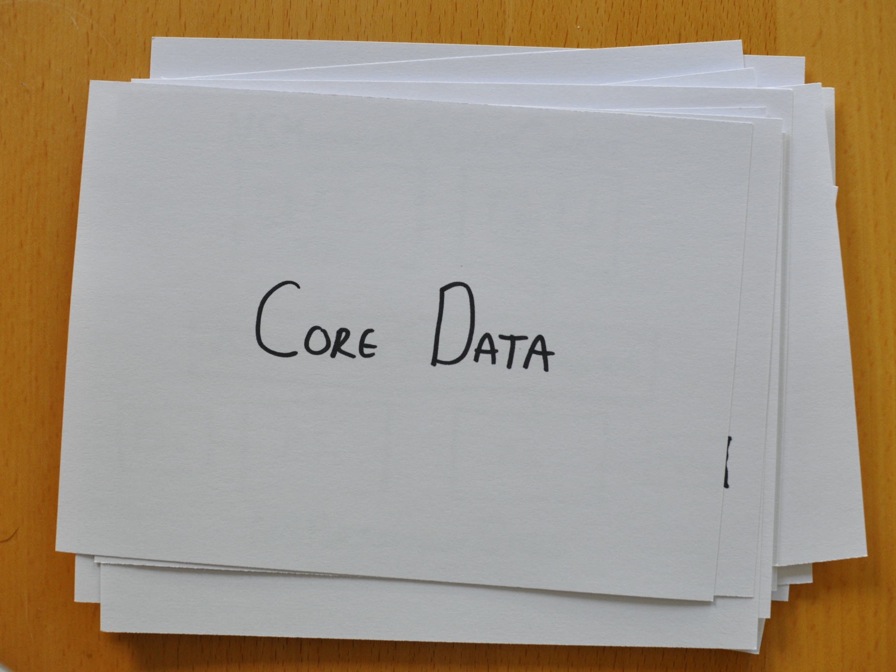 Core Data